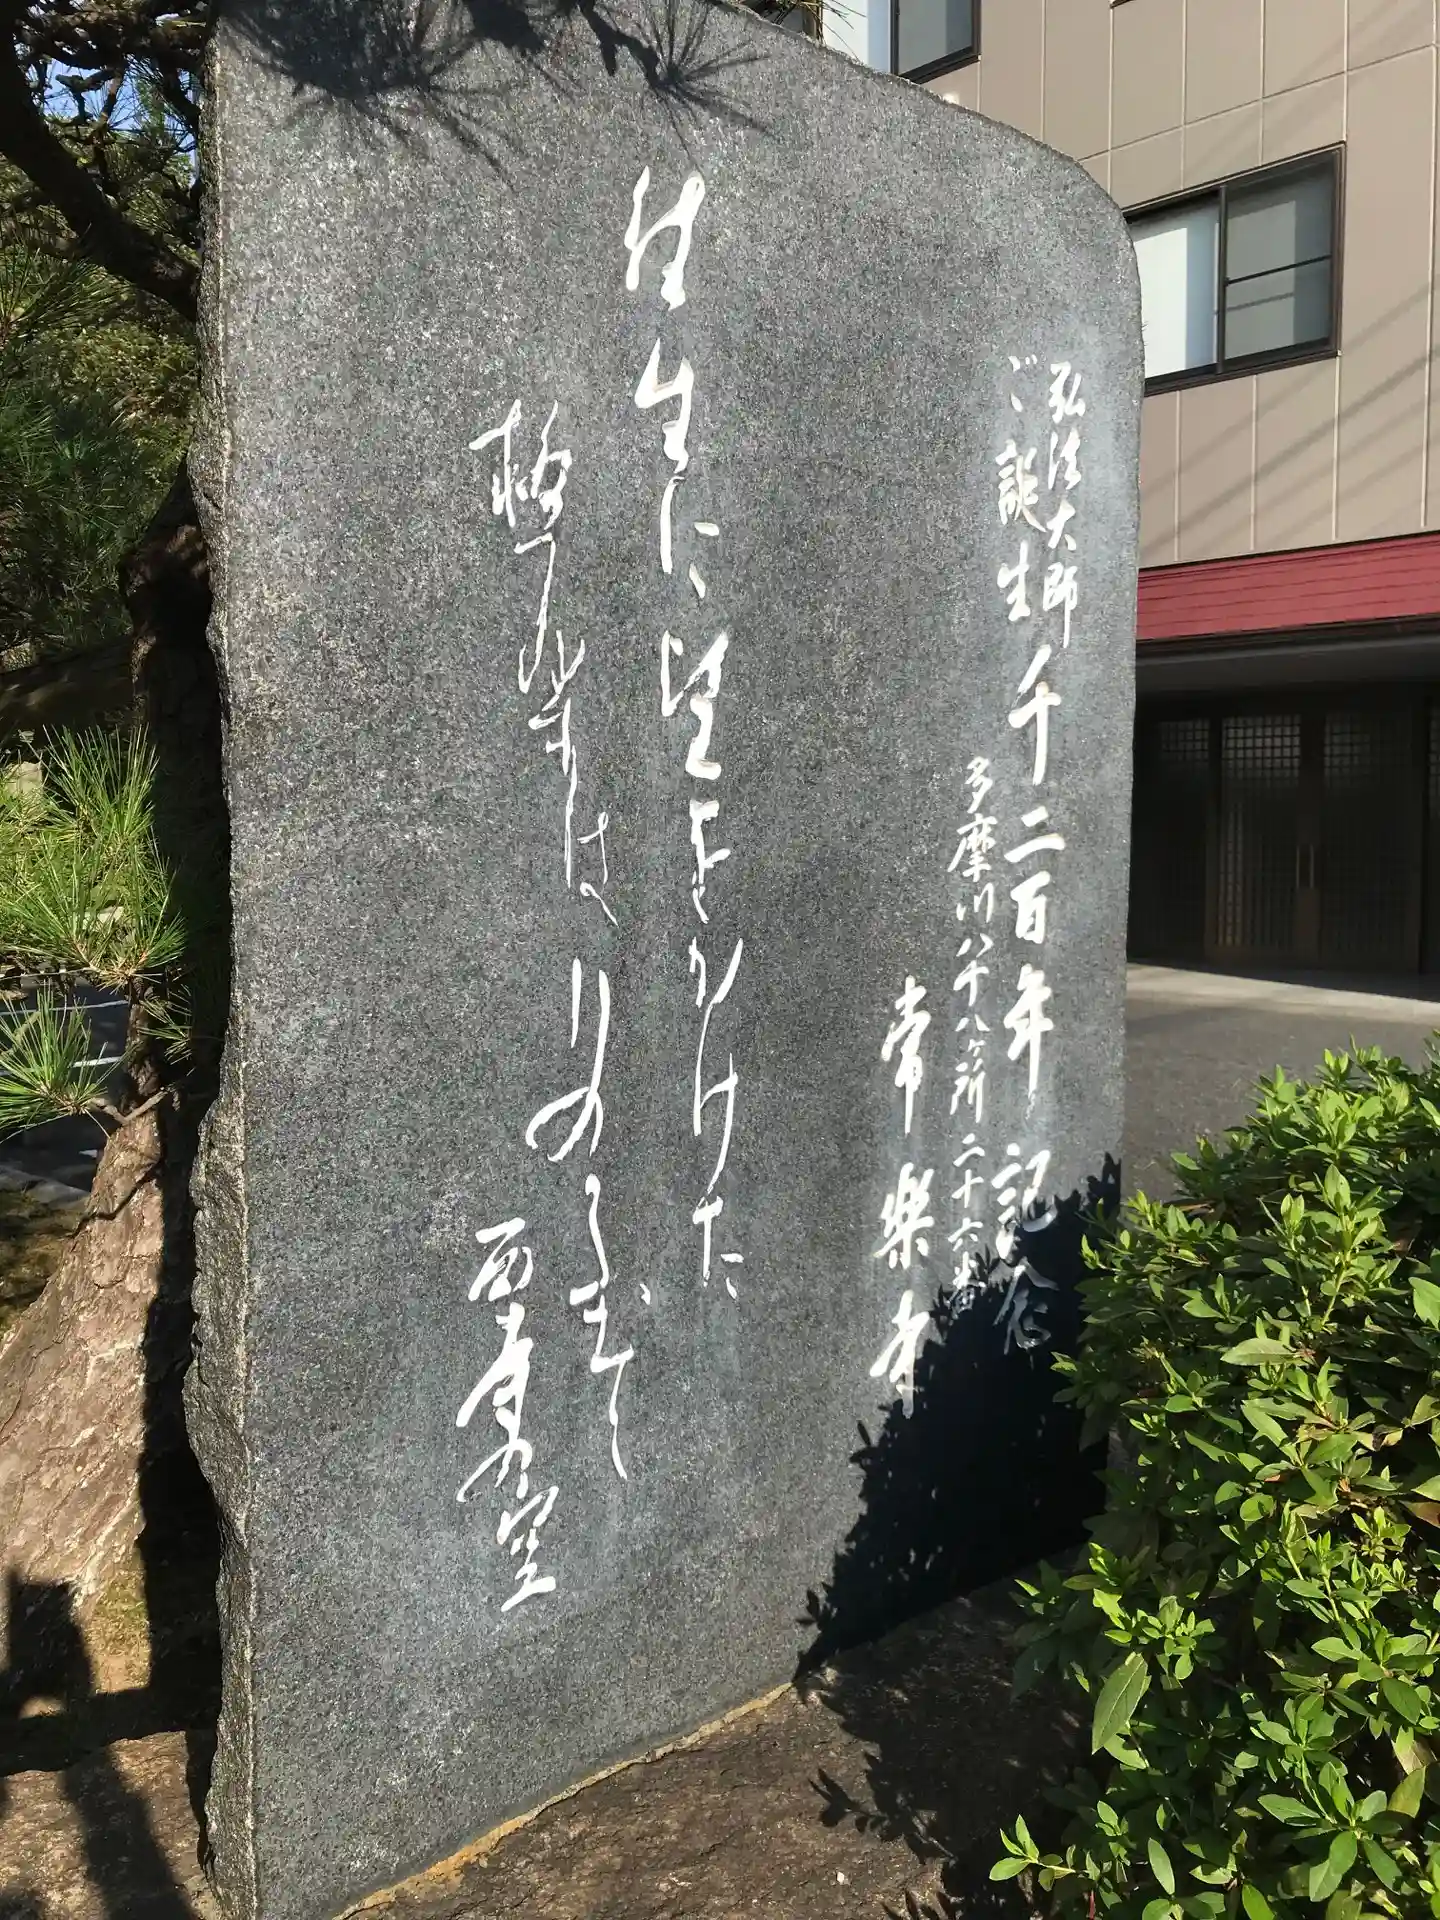 弘法大師
ご誕生
千二百年記念
多摩川八十八ヶ所二十六番
常樂寺
往生に望をかけた
極楽は
りのるまで
西方の空